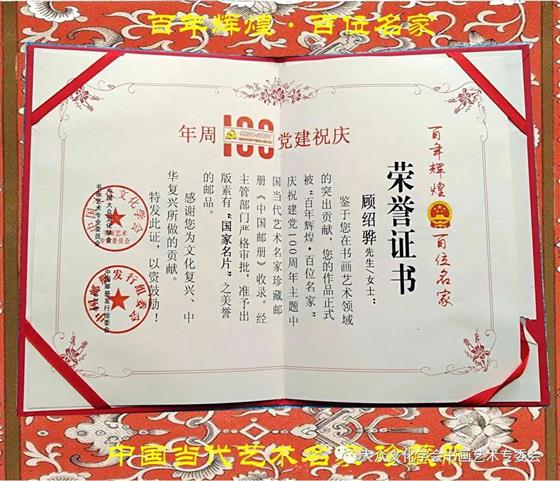 百年辉煌·百位名家
庆祝建党100周年
百年辉煌
百位名家
荣誉证书
顾绍骅 先生/女士：
鉴于您在书画艺术领域
的突出贡献，您的作品正式
被“百年辉煌·百位名家”
庆祝建党100周年主题中
国当代艺术名家珍藏邮
册《中国邮册》收录。经
主管部门严格审批，准予出
版素有“国家名片”之美誉
的邮品。
感谢您为文化复兴、中
华复兴所做的贡献。
特发此证，以资鼓励！
中国大众文化学会
书画艺术专业委员会
中国邮册发行组委会
中国当代艺术名家珍藏
大众文化学会书画艺术专委会